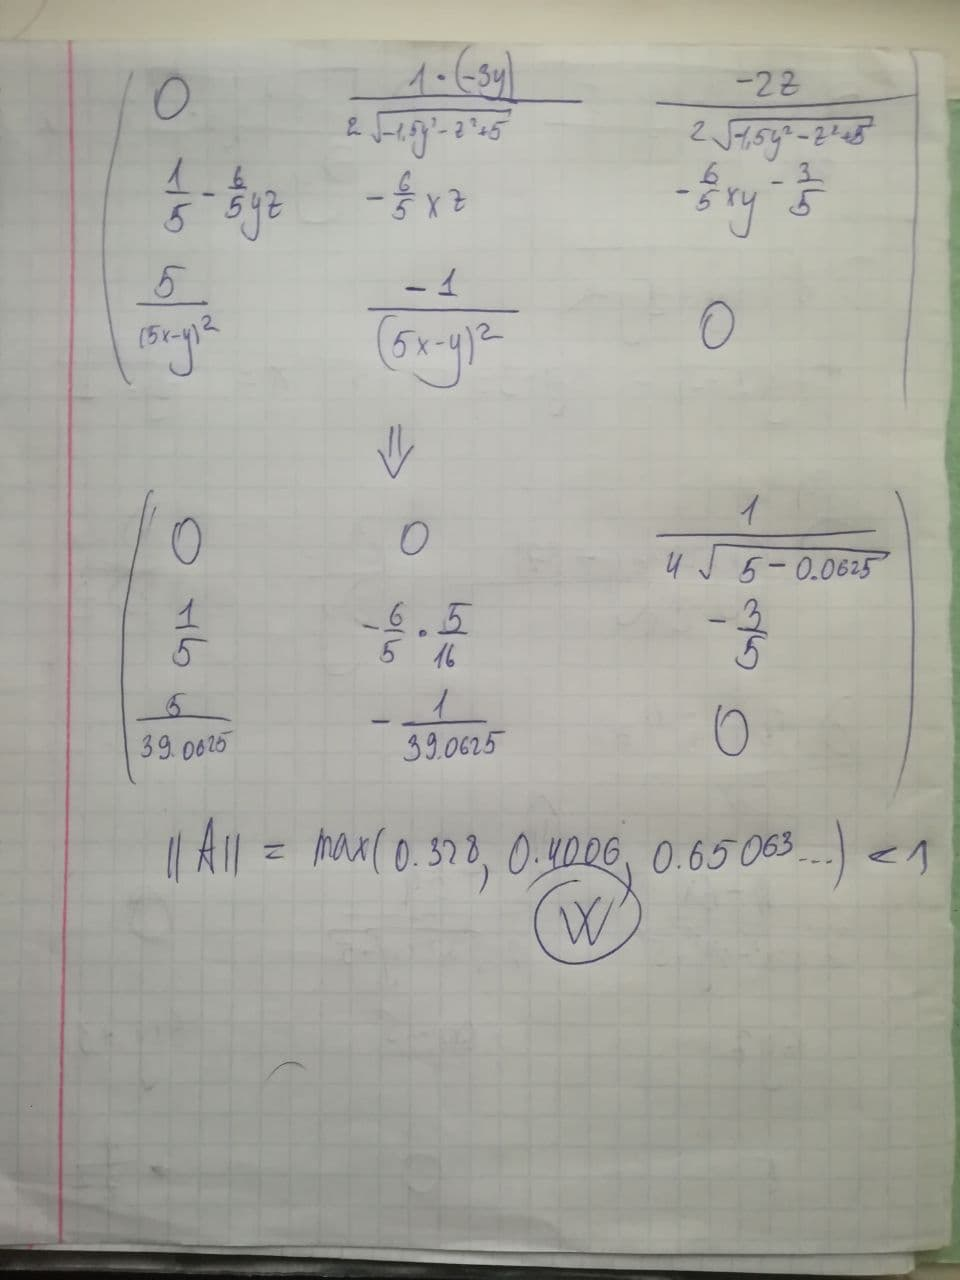 0 1·(-3y)/(2√(-1,5y²-z²+5)) -2z/(2√(-1,5y²-z²+5))
1/5 - 6/5 yz -6/5 xz -6/5 xy - 3/5
5/(5x-y)² -1/(5x-y)² 0
⇓
0 0 1/(4√(5-0.0625))
1/5 -6/5 · 5/16 -3/5
5/39.0625 -1/39.0625 0
||A|| = max(0.328, 0.4006, 0.65063...) < 1
W